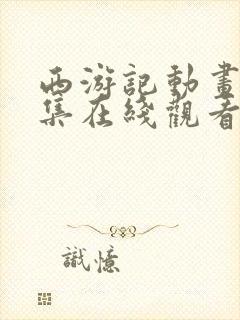 西游記動畫
集在綫觀看
識憶